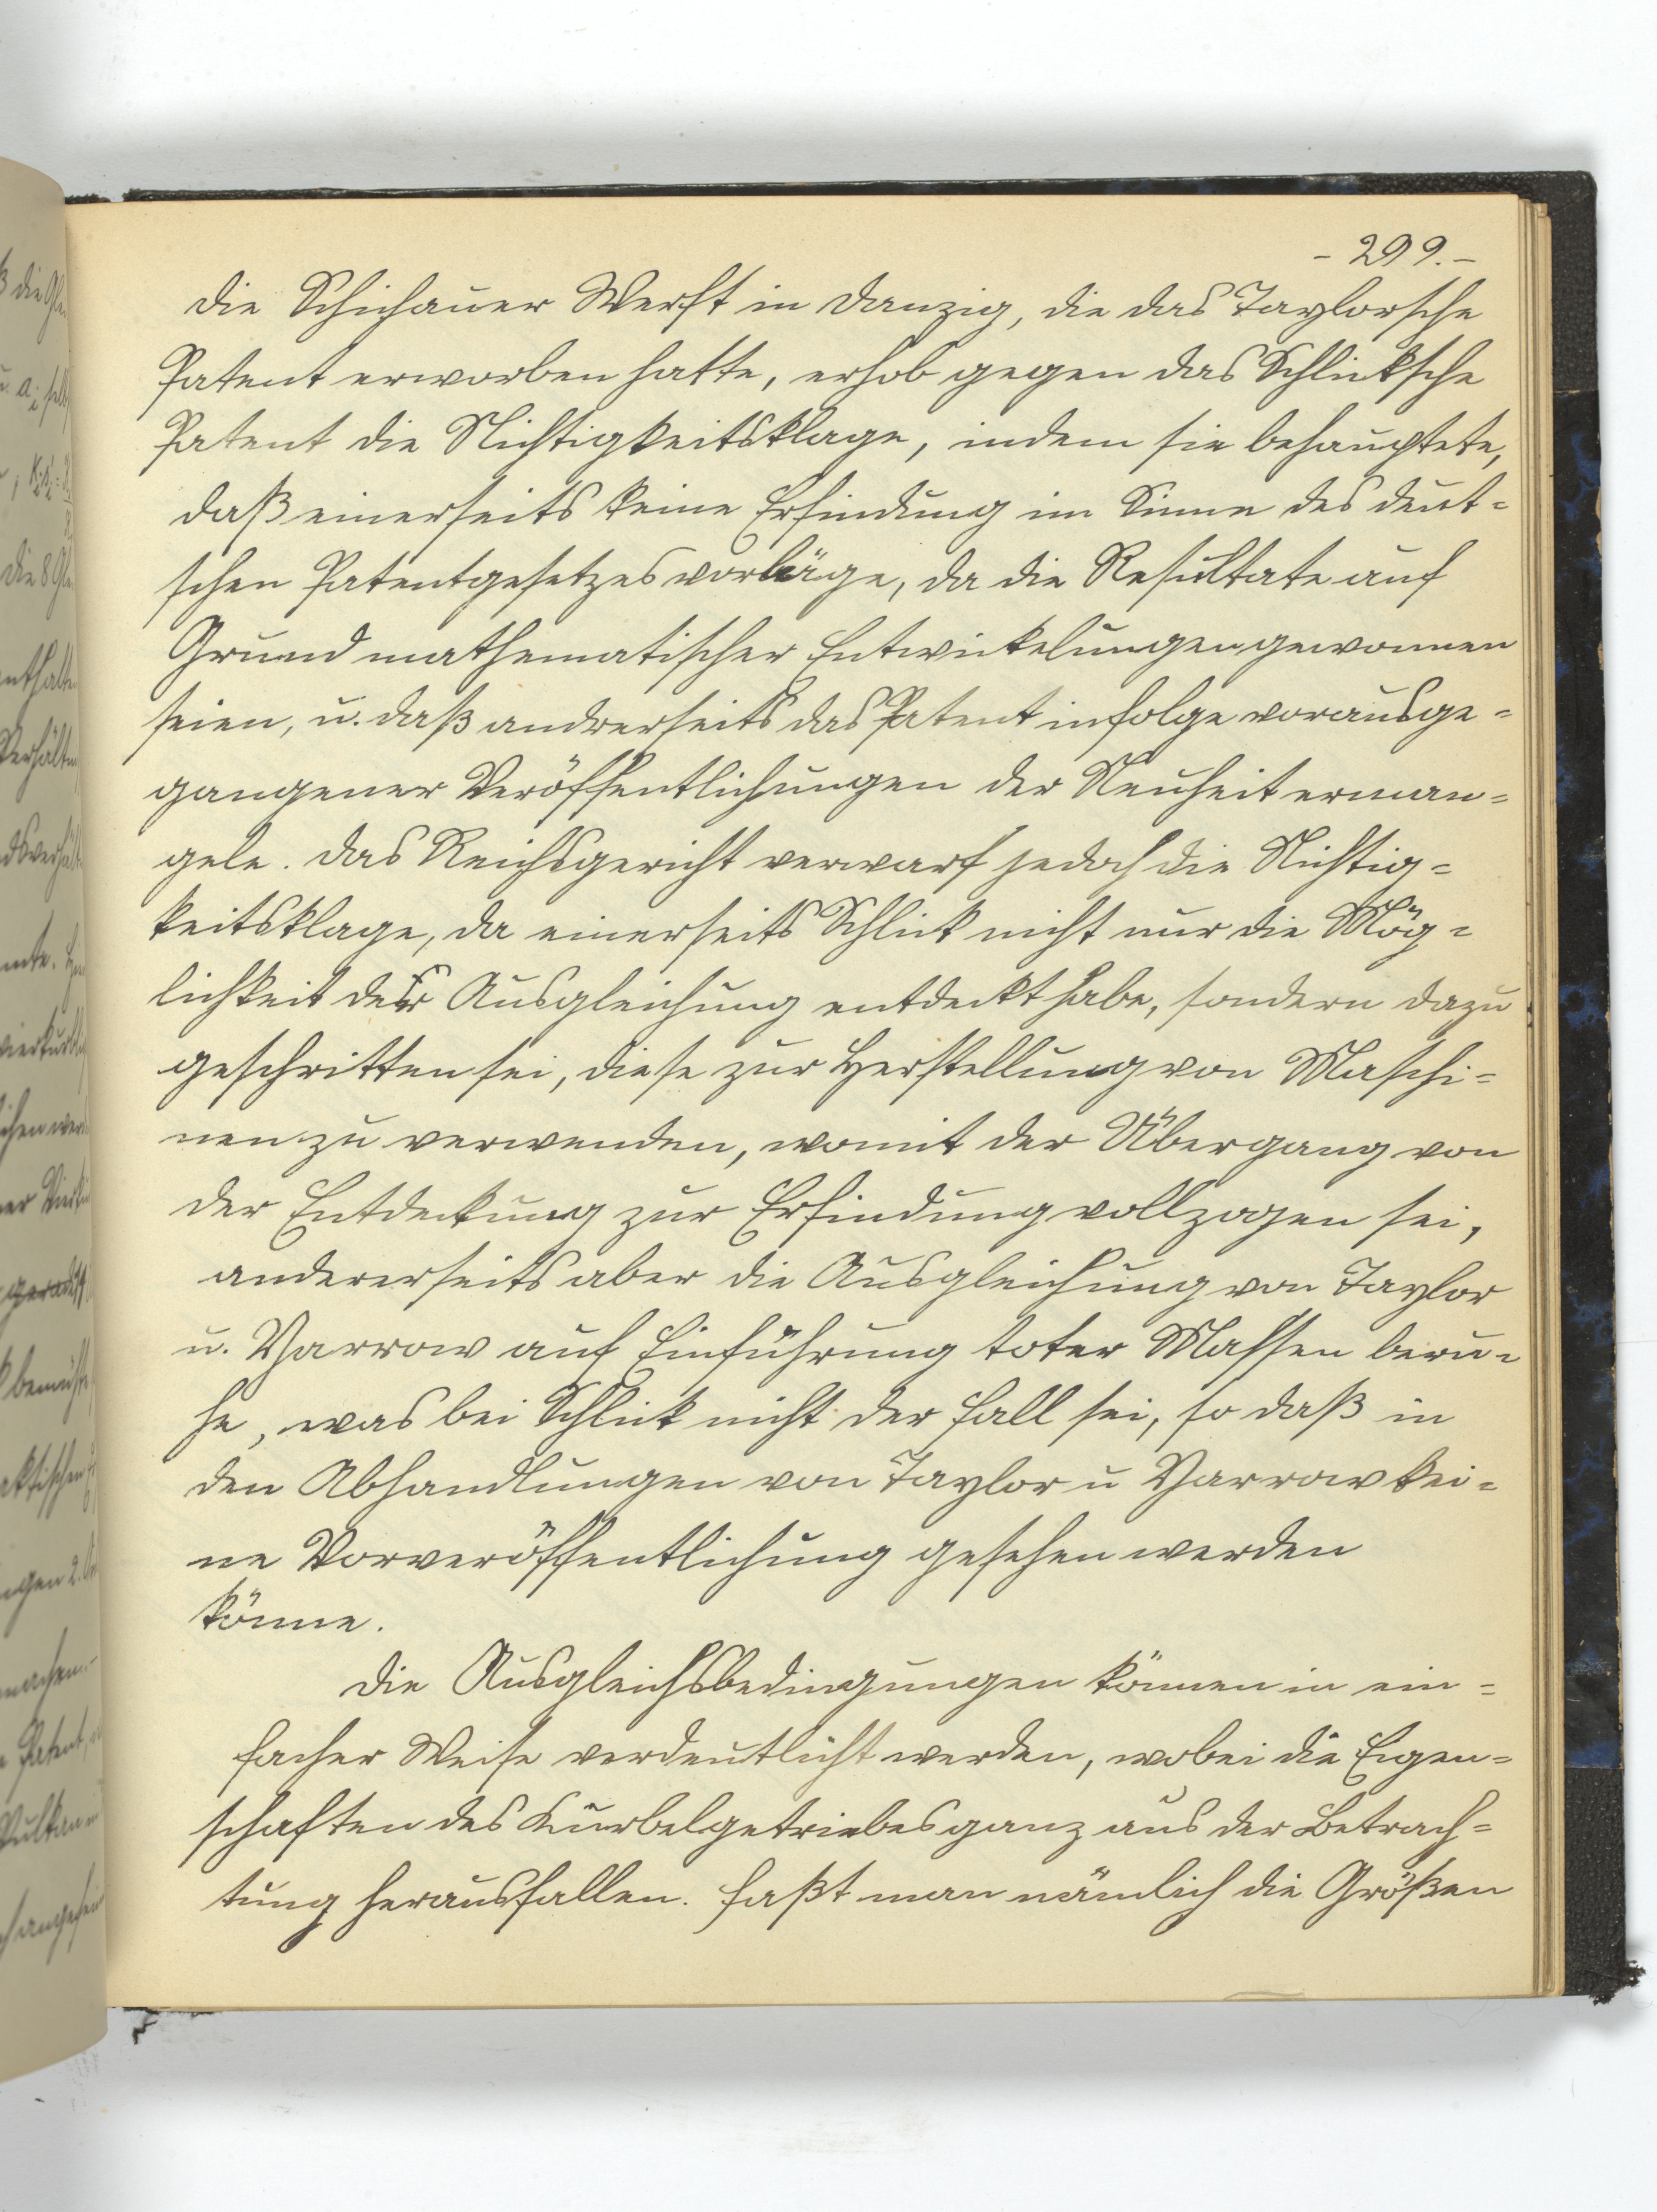 - 299. -
Die Schichauer Werft in Danzig, die das Taylorsche
Patent erworben hatte, erhob gegen das Schlicksche
Patent die Nichtigkeitsklage, indem sie behauptete,
daß einerseits keine Erfindung im Sinne des deut=
schen Patentgesetzes vorläge, da die Resultate auf
Grund mathematischer Entwickelungen gewonnen
seien, u. daß andrerseits das Patent infolge vorausge=
gangener Veröffentlichungen der Neuheit erman=
gele. Das Reichsgericht verwarf jedoch die Nichtig=
keitsklage, da einerseits Schlick nicht nur die Mög=
lichkeit der Ausgleichung entdeckt habe, sondern dazu
geschritten sei, diese zur Herstellung von Maschi=
nen zu verwenden, womit der Übergang von
der Entdeckung zur Erfindung vollzogen sei,
andererseits aber die Ausgleichung von Taylor
u. Yarrow auf Einführung toter Massen beru=
he, was bei Schlick nicht der Fall sei, so daß in
den Abhandlungen von Taylor u Yarrow kei=
ne Vorveröffentlichung gesehen werden
könne.
Die Ausgleichsbedingungen können in ein=
facher Weise verdeutlicht werden, wobei die Eigen=
schaften des Kurbelgetriebes ganz aus der Betrach=
tung herausfallen. Faßt man nämlich die Größen